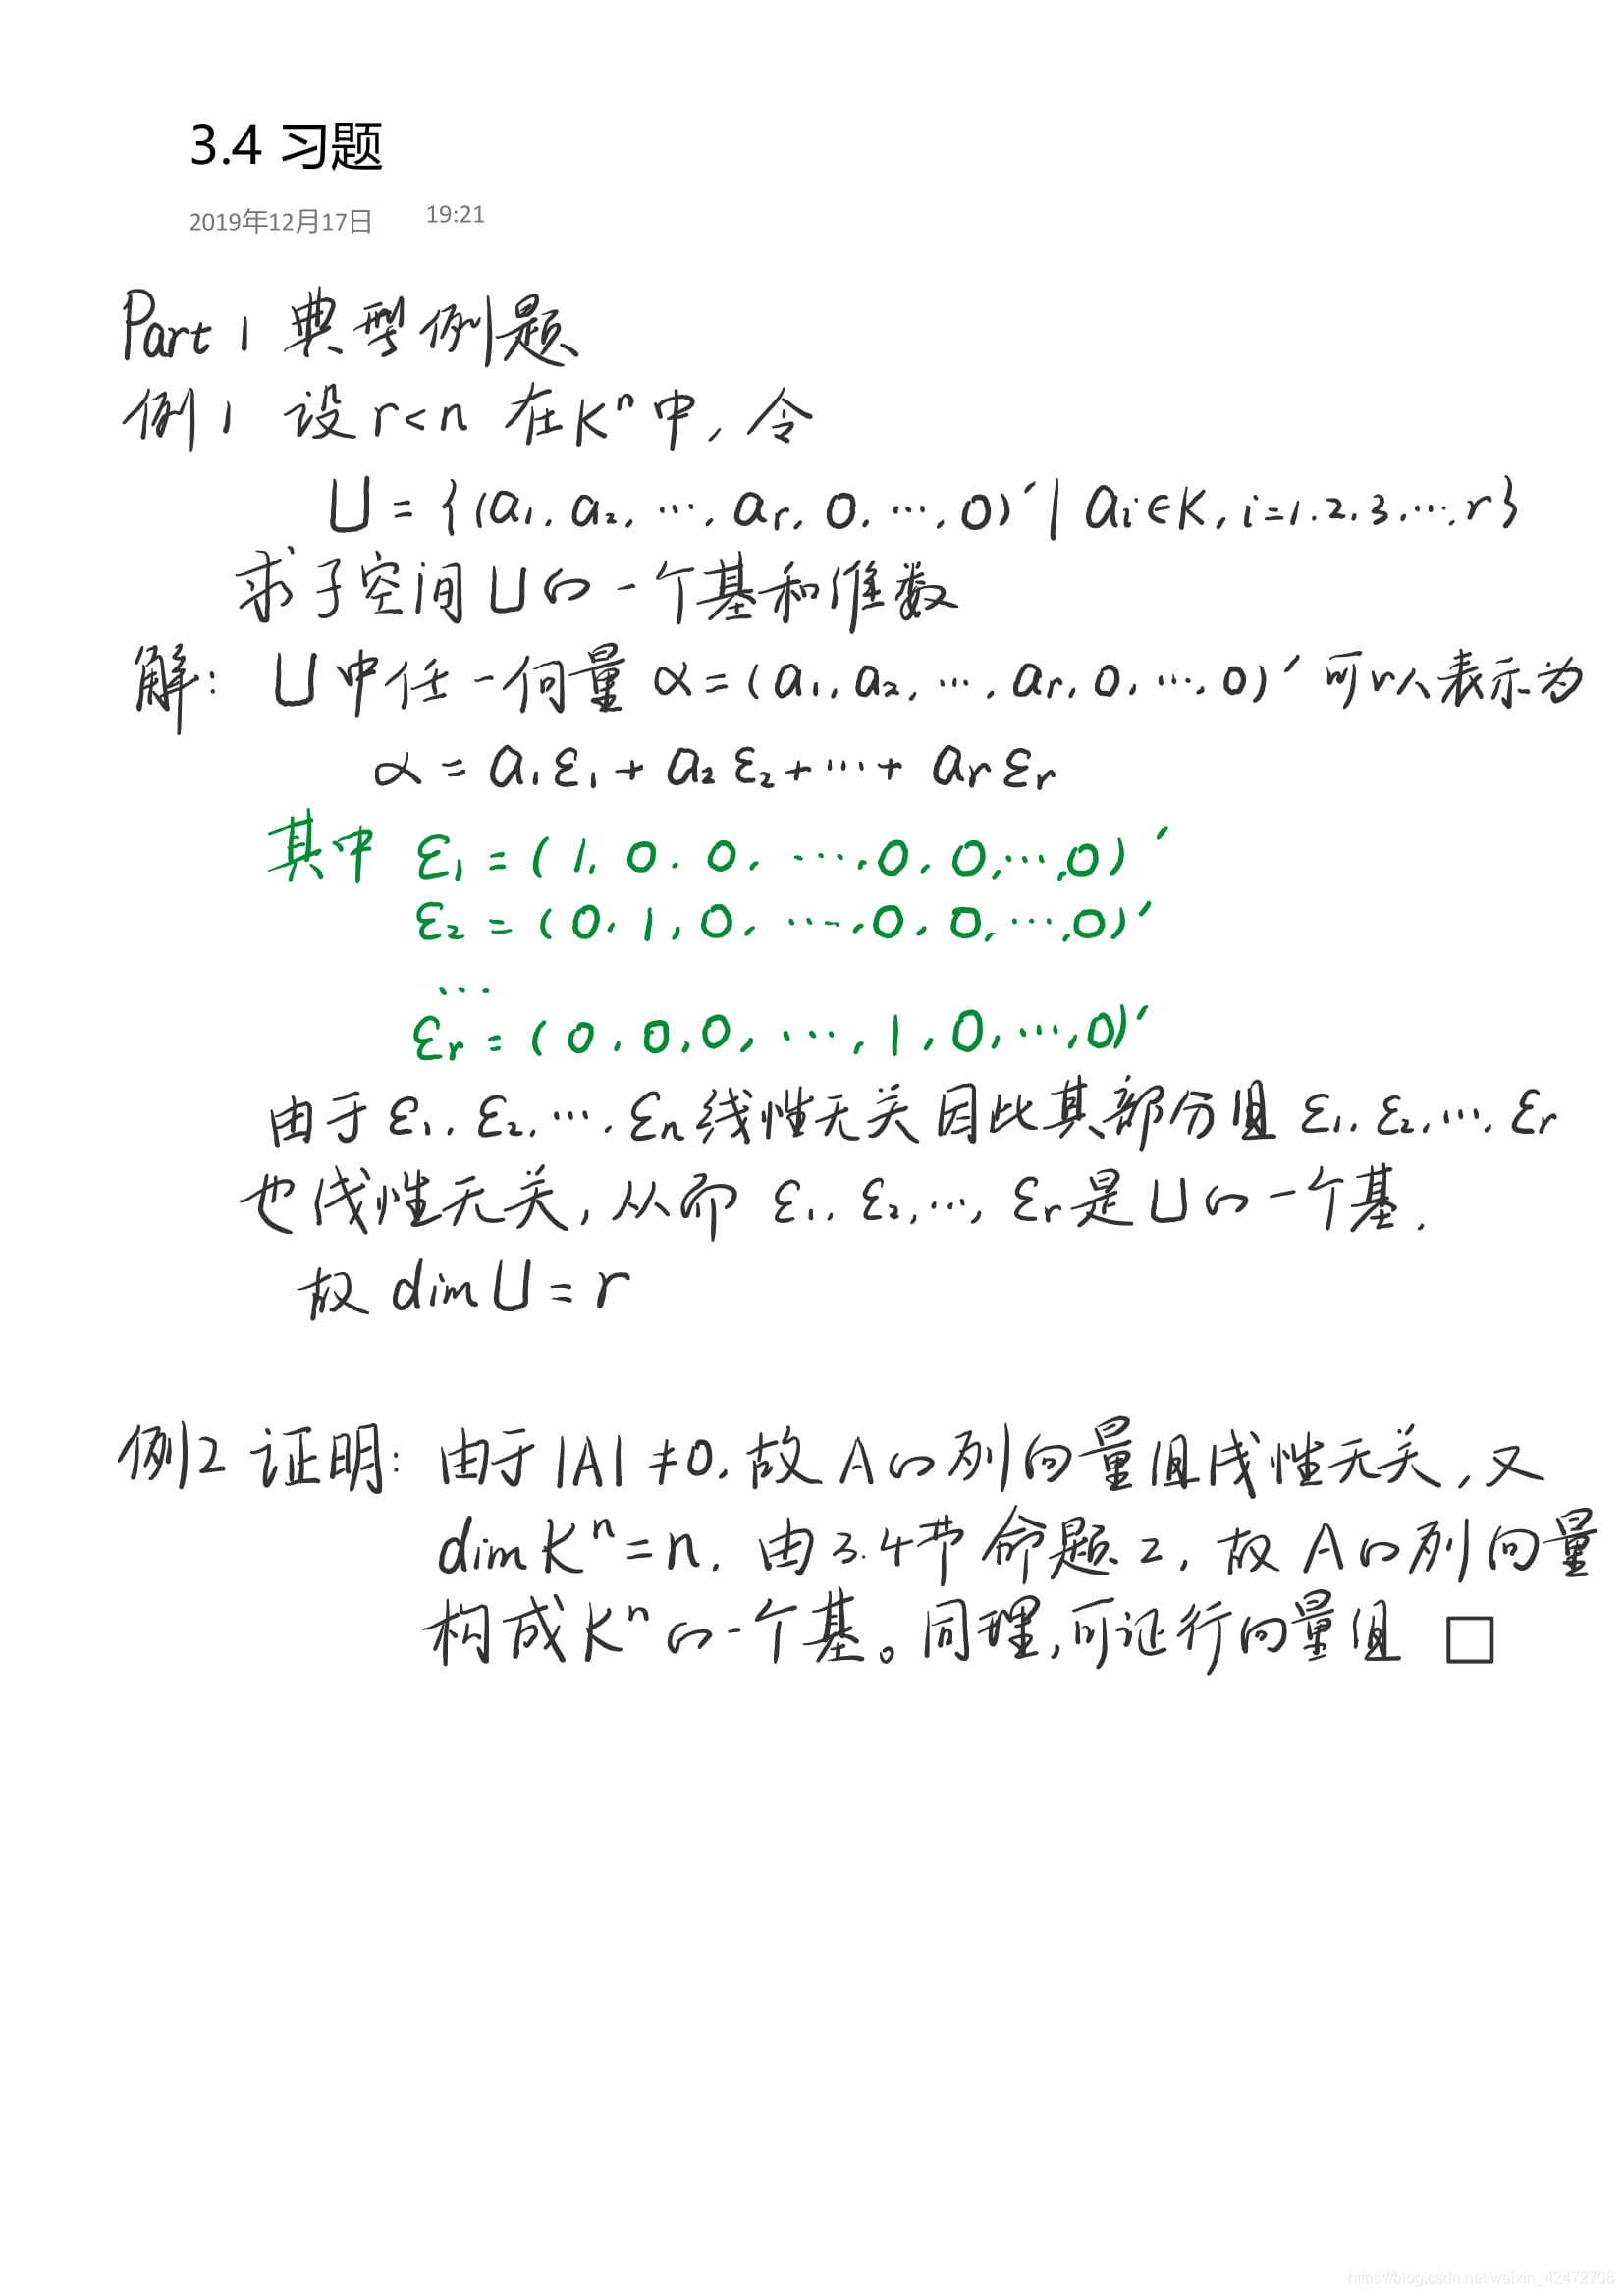 3.4 习题
2019年12月17日 19:21
Part 1 典型例题
例1 设 r<n 在Kⁿ中, 令
U = {(a₁, a₂, …, aᵣ, 0, …, 0)′ | aᵢ∈K, i=1.2.3.….r}
求子空间U的一个基和维数
解: U中任一向量 α=(a₁, a₂, …, aᵣ, 0, …, 0)′ 可以表示为
α = a₁ε₁ + a₂ε₂ + … + aᵣεᵣ
其中 ε₁ = (1, 0, 0, …, 0, 0, …, 0)′
ε₂ = (0, 1, 0, …, 0, 0, …, 0)′
…
εᵣ = (0, 0, 0, …, 1, 0, …, 0)′
由于 ε₁, ε₂, …, εₙ线性无关因此其部分组 ε₁, ε₂, …, εᵣ
也线性无关, 从而 ε₁, ε₂, …, εᵣ是U的一个基.
故 dim U = r
例2 证明: 由于|A|≠0, 故A的列向量组线性无关, 又
dim Kⁿ=n. 由3.4节命题2, 故A的列向量
构成Kⁿ的一个基。同理,可证行向量组 □
https://blog.csdn.net/weixin_42472706